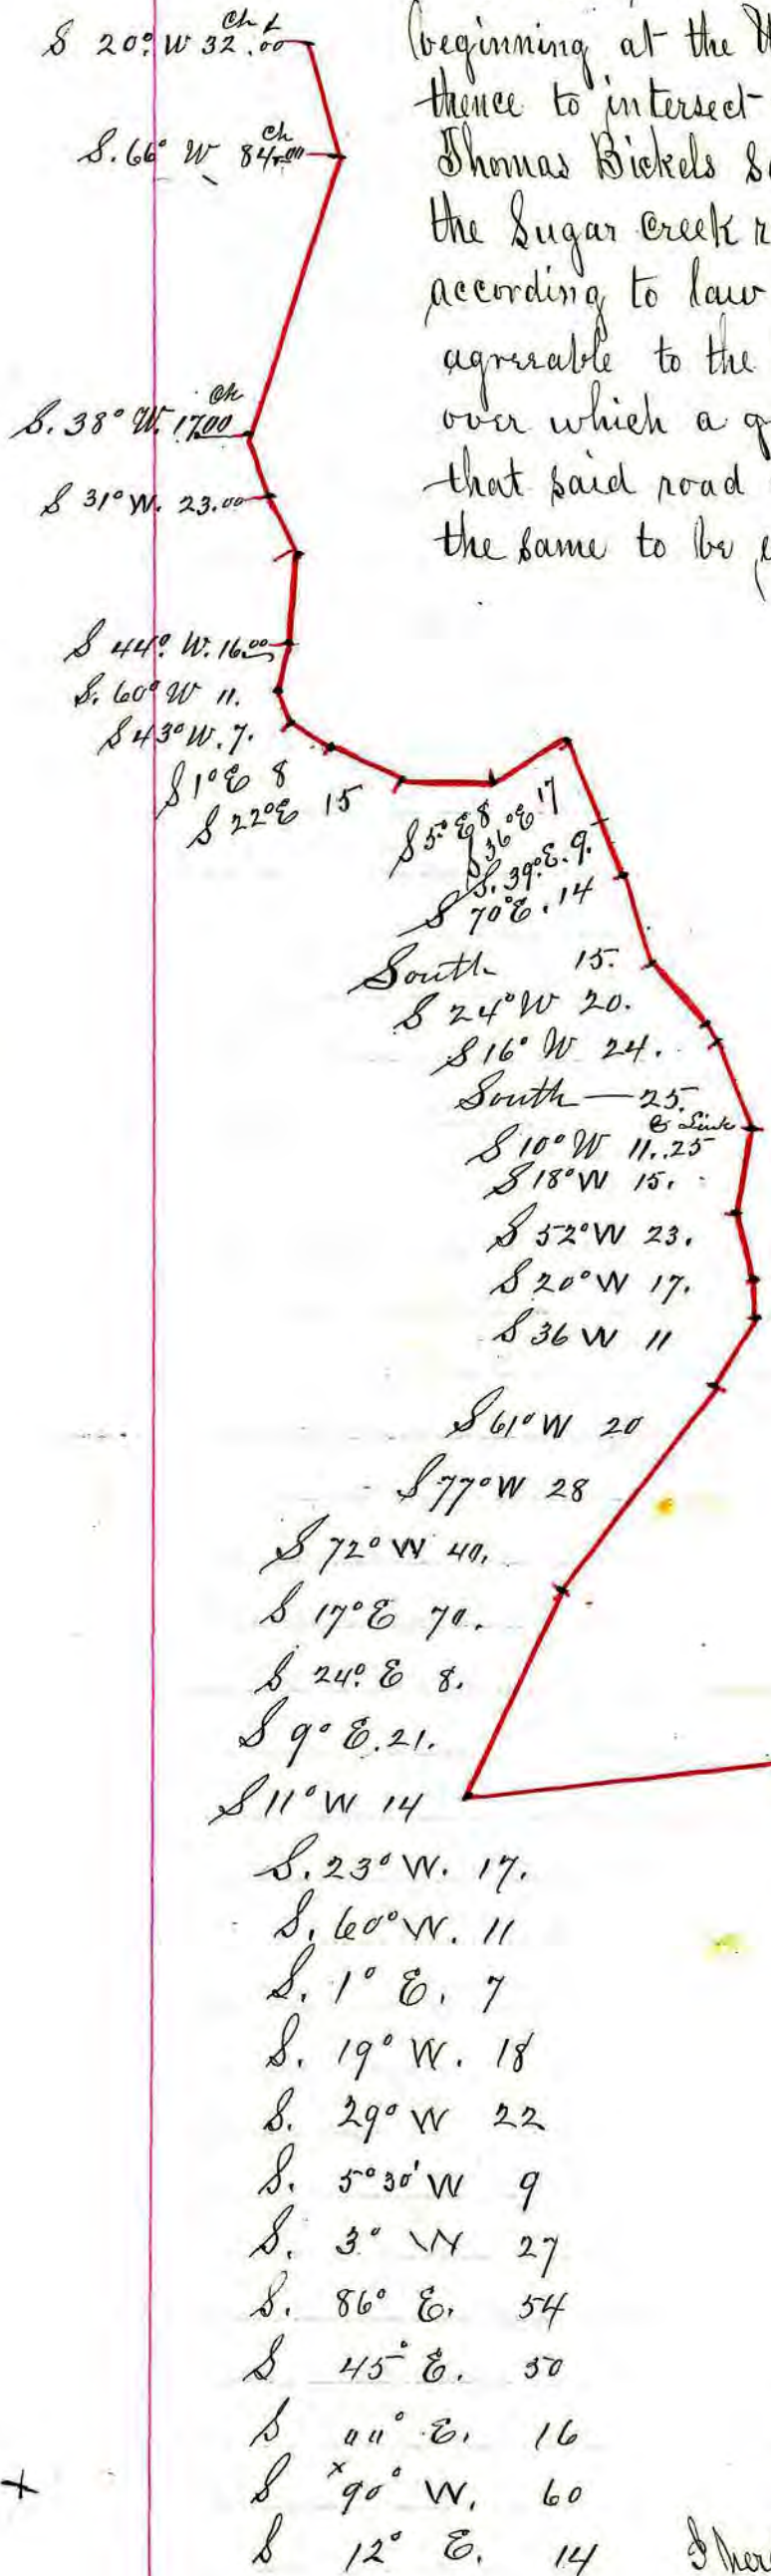 Ch L
S 20° W 32.00
Ch
S. 66° W 84.00
Ch
S. 38° W. 17.00
S 31° W. 23.00
S 44° W. 16.00
S. 60° W 11.
S 43° W. 7.
S 1° E 8
S 22° E 15
S 5° E 8
S 36° E 17
S. 39° E. 9.
S 70° E. 14
South 15.
S 24° W 20.
S 16° W 24.
South — 25.
& Link
S 10° W 11..25
S 18° W 15.
S 52° W 23.
S 20° W 17.
S 36 W 11
S 61° W 20
S 77° W 28
S 72° W 40.
S 17° E 70.
S 24° E 8.
S 9° E. 21.
S 11° W 14
S. 23° W. 17.
S. 60° W. 11
S. 1° E. 7
S. 19° W. 18
S. 29° W 22
S. 5° 30' W 9
S. 3° W 27
S. 86° E. 54
S 45° E. 50
S E. 16
x
S 90° W. 60
S 12° E. 14
beginning at the
thence to intersect
Thomas Bickels
the Sugar Creek
according to law
agreeable to the
over which a
that said road
the same to be
I